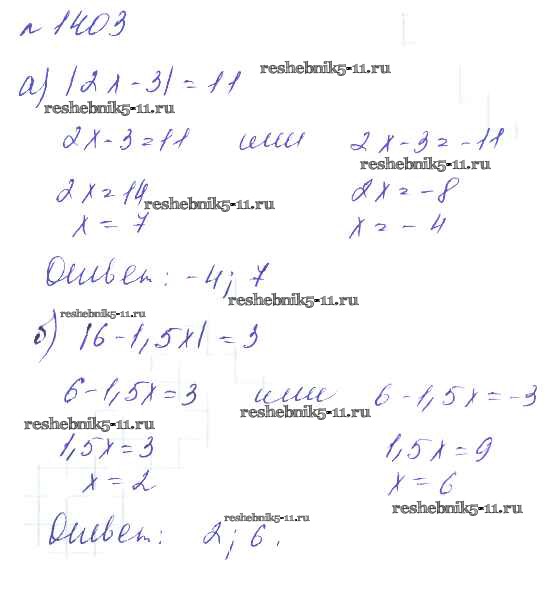 № 1403
а) |2x-3| = 11 reshebnik5-11.ru
reshebnik5-11.ru
2x-3=11 или 2x-3=-11
reshebnik5-11.ru
2x=14 reshebnik5-11.ru 2x=-8
x=7 x=-4
Ответ: -4; 7
reshebnik5-11.ru
reshebnik5-11.ru
б) |6-1,5x| = 3
6-1,5x=3 или 6-1,5x=-3
reshebnik5-11.ru reshebnik5-11.ru
1,5x=3 1,5x=9
x=2 x=6
reshebnik5-11.ru
reshebnik5-11.ru
Ответ: 2; 6.